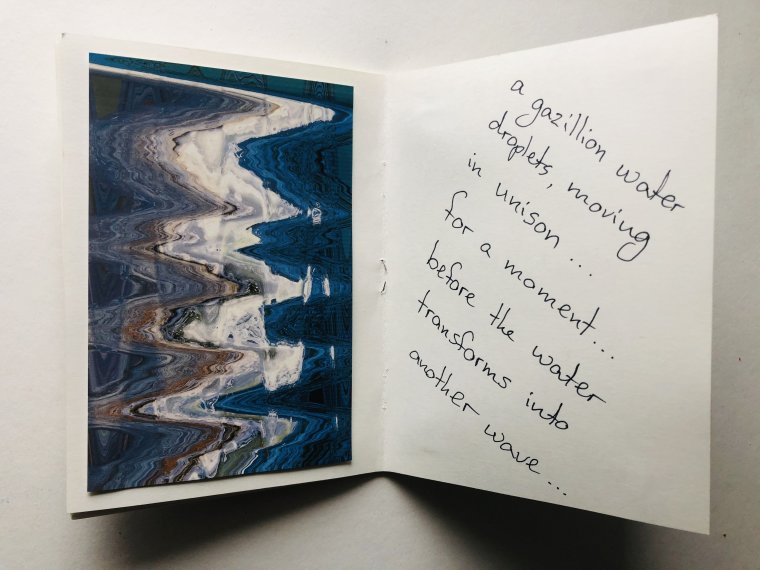 a gazillion water
droplets, moving
in unison...
for a moment...
before the water
transforms into
another wave...